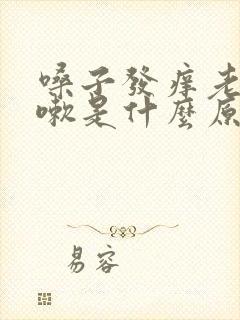 嗓子發癢老
嗽是什麼原
易容